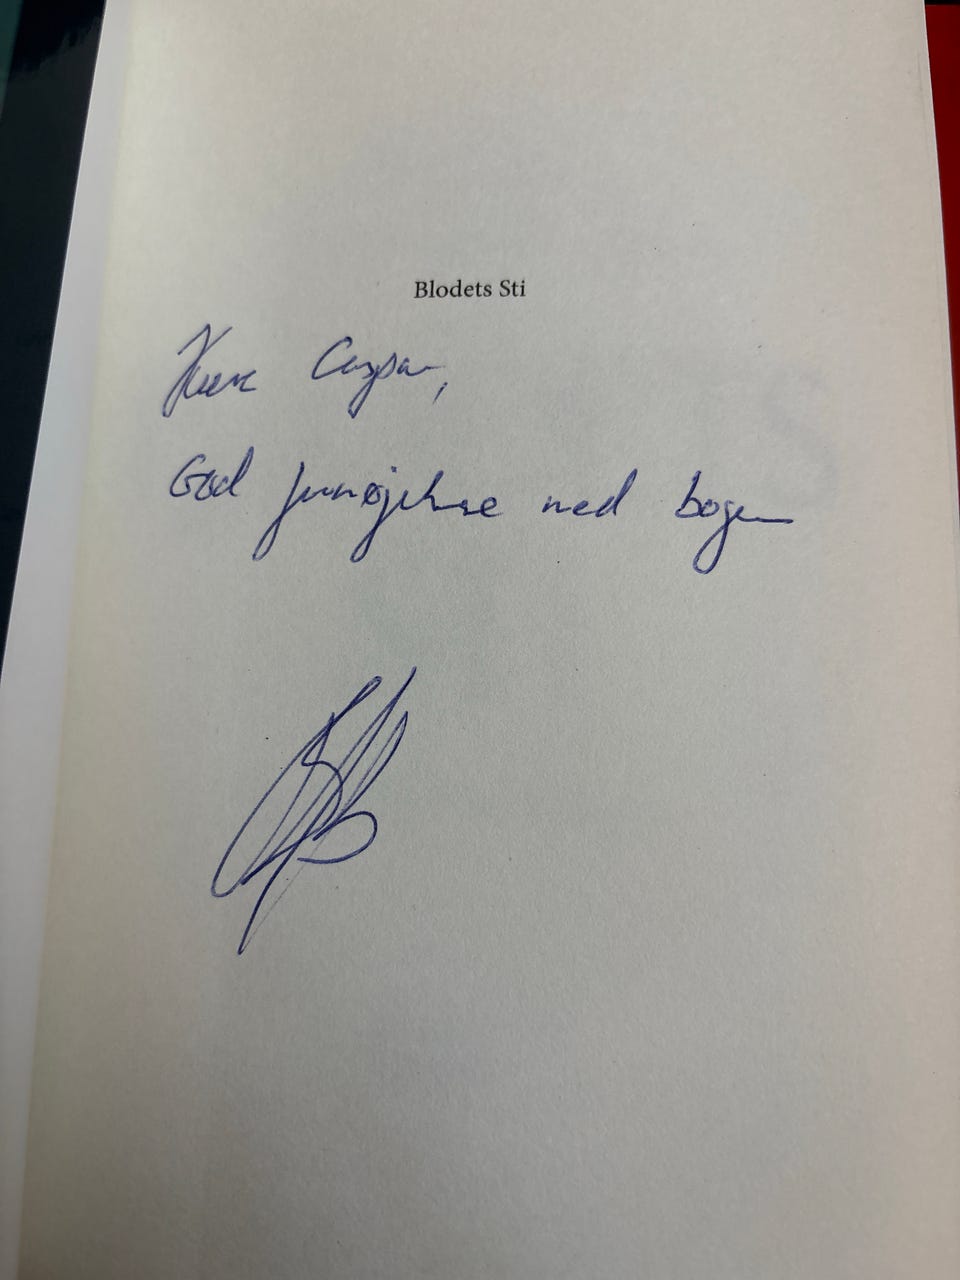 Blodets Sti
Kære Caspar,
God fornøjelse med bogen